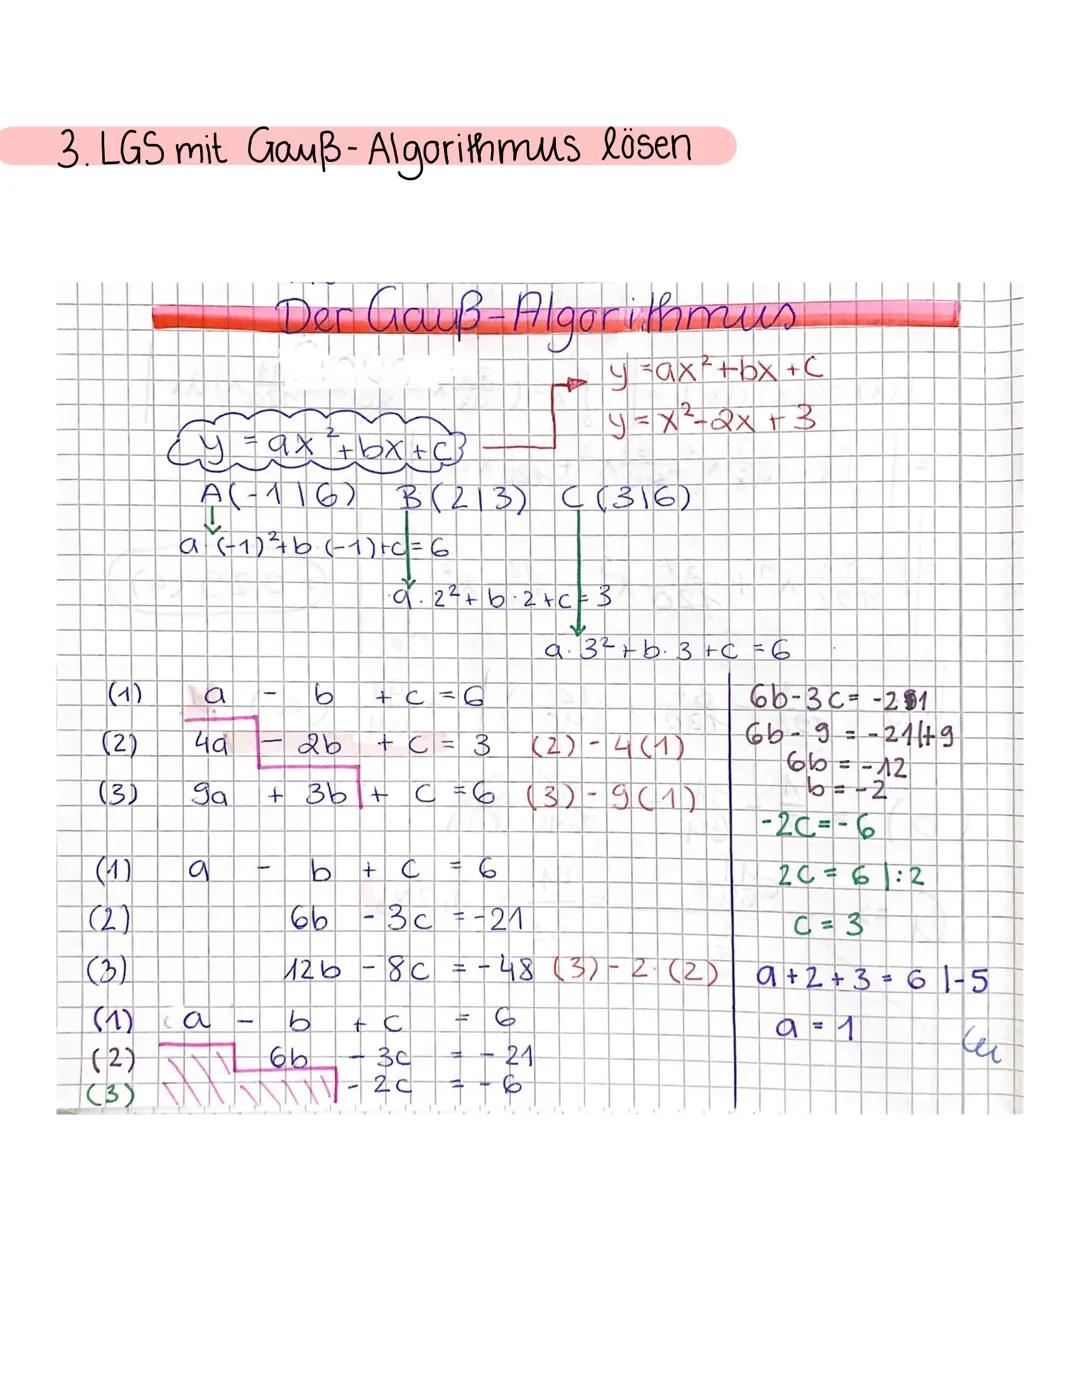 3. LGS mit Gauß-Algorithmus lösen
Der Gauß-Algorithmus
y = ax²+bx+C
y = x²-2x+3
y = ax²+bx+c
A(-1|6) B(2|3) C(3|6)
a·(-1)²+b·(-1)+c=6
a·2²+b·2+c=3
a·3²+b·3+c=6
(1) a - b + c = 6
(2) 4a - 2b + c = 3 (2)-4(1)
(3) 9a + 3b + c = 6 (3)-9(1)
(1) a - b + c = 6
(2) 6b - 3c = -21
(3) 12b - 8c = -48 (3)-2·(2)
(1) a - b + c = 6
(2) 6b - 3c = -21
(3) -2c = -6
6b-3c = -21
6b-9 = -21|+9
6b = -12
b = -2
-2c = -6
2c = 6 |:2
c = 3
a+2+3 = 6 |-5
a = 1